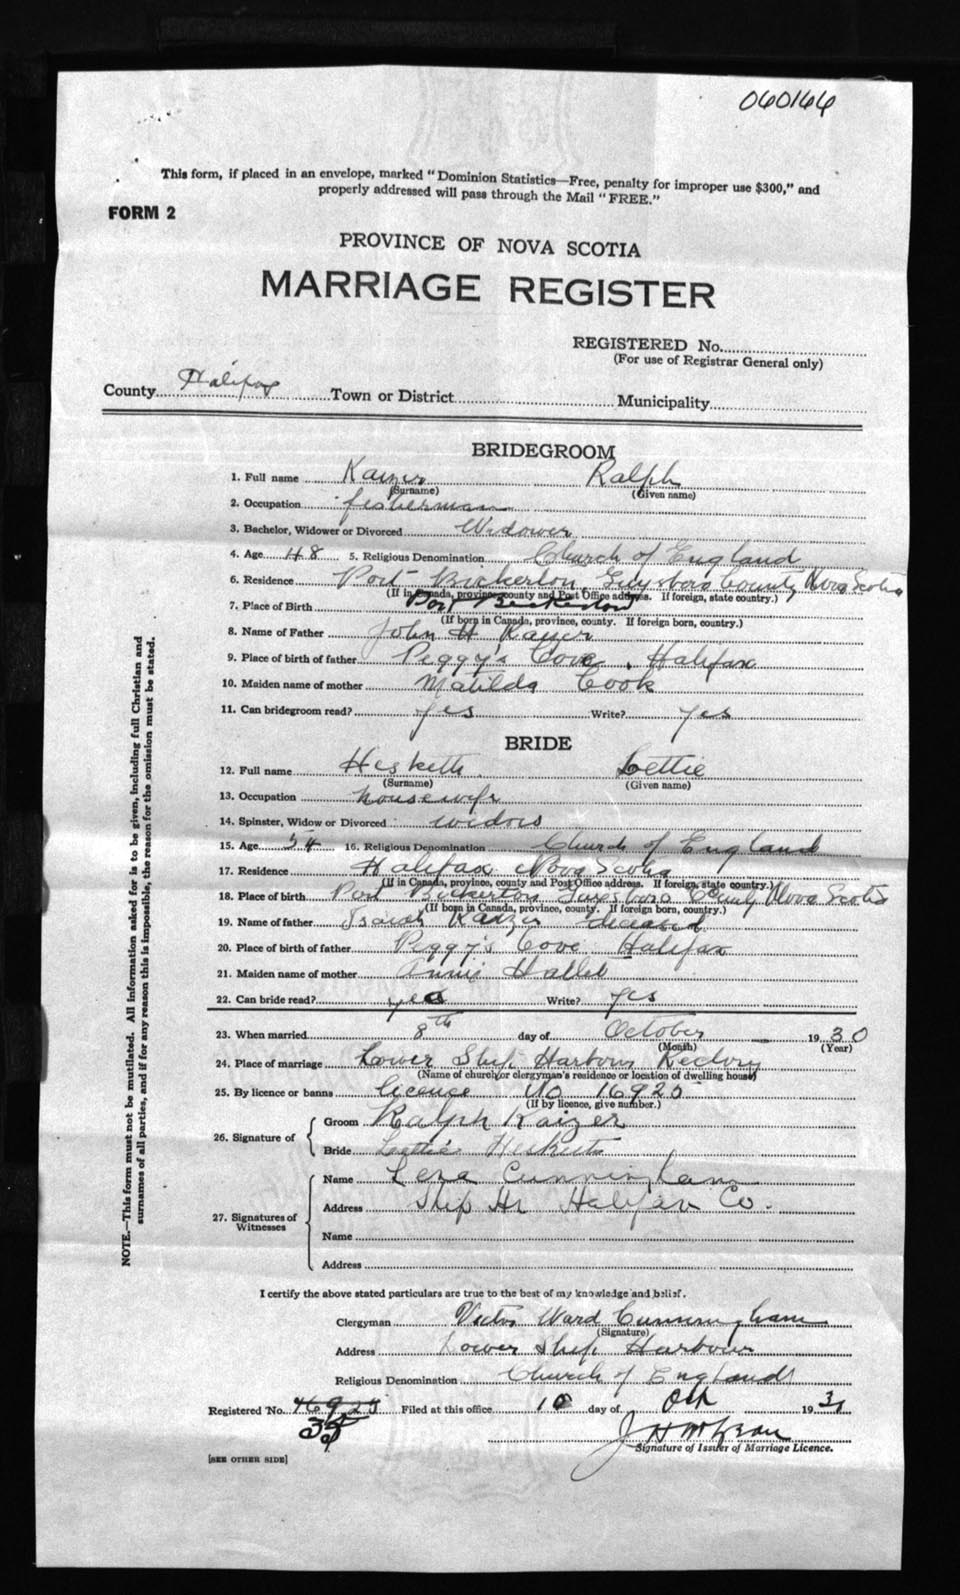 060166
This form, if placed in an envelope, marked "Dominion Statistics—Free, penalty for improper use $300," and
properly addressed will pass through the Mail "FREE."
FORM 2
PROVINCE OF NOVA SCOTIA
MARRIAGE REGISTER
REGISTERED No.
(For use of Registrar General only)
County Halifax Town or District Municipality
BRIDEGROOM
1. Full name Kaizer Ralph
(Surname) (Given name)
2. Occupation fisherman
3. Bachelor, Widower or Divorced Widower
4. Age 48 5. Religious Denomination Church of England
6. Residence Port Bickerton Guysboro County Nova Scotia
(If in Canada, province, county and Post Office address. If foreign, state country.)
7. Place of Birth Port Bickerton
(If born in Canada, province, county. If foreign born, country.)
8. Name of Father John H Kaizer
9. Place of birth of father Peggy's Cove, Halifax
10. Maiden name of mother Matilda Cook
11. Can bridegroom read? yes Write? yes
BRIDE
12. Full name Hesketh Lettie
(Surname) (Given name)
13. Occupation housewife
14. Spinster, Widow or Divorced widow
15. Age 54 16. Religious Denomination Church of England
17. Residence Halifax Nova Scotia
(If in Canada, province, county and Post Office address. If foreign, state country.)
18. Place of birth Port Bickerton Guysboro County Nova Scotia
(If born in Canada, province, county. If foreign born, country.)
19. Name of father Kaizer deceased
20. Place of birth of father Peggy's Cove Halifax
21. Maiden name of mother Annie
22. Can bride read? yes Write? yes
23. When married 8th day of October 1930
(Month) (Year)
24. Place of marriage Lower Ship Harbour Rectory
(Name of church or clergyman's residence or location of dwelling house)
25. By licence or banns licence No 16925
(If by licence, give number.)
26. Signature of
Groom Ralph Kaizer
Bride Lettie Hesketh
27. Signatures of Witnesses
Name Lena Cunningham
Address Ship Hr Halifax Co.
Name
Address
NOTE.—This form must not be mutilated. All information asked for is to be given, including full Christian and
surnames of all parties, and if for any reason this is impossible, the reason for the omission must be stated.
I certify the above stated particulars are true to the best of my knowledge and belief.
Clergyman Victor Ward Cunningham
(Signature)
Address Lower Ship Harbour
Religious Denomination Church of England
Registered No. Filed at this office 10 day of Oct 19
35
Signature of Issuer of Marriage Licence.
[SEE OTHER SIDE]